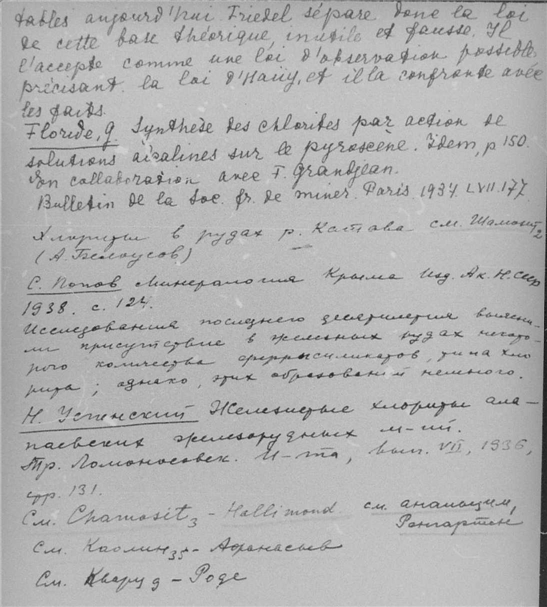 tables aujourd'hui Friedel sépare donc la loi
de cette base théorique inutile et fausse. Il
l'accepte comme une loi d'observation possible
précisant la loi d'Haüy, et il la confronte avec
les faits.
Floride, g Synthèse des chlorites par action de
solutions alcalines sur le pyroscène. Idem, p 150.
En collaboration avec F. Grandjean.
Bulletin de la Soc. fr. de miner. Paris. 1934. LVII. 177
Хлориты в рудах р. Катава см. Шамозит 2
(А. Белоусов)
С. Попов Минералогия Крыма Изд. Ак. Н. СССР
1938. с. 124.
Исследования последнего десятилетия выясни-
ли присутствие в железных рудах некото-
рого количества феррисиликатов, типа хло
рита; однако, этих образований немного.
Н. Успенский Железистые хлориты ала-
паевских железорудных м-ний.
Тр. Ломоносовск. И-та, вып. VII, 1936,
стр. 131.
См. Chamosit 3 - Hallimond см. анальцим,
Ренгартен
См. Каолин 35 - Афанасьев
См. Кварц 9 - Роде